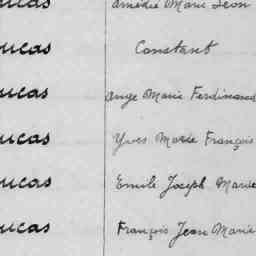 ucas Amédée Marie Léon
ucas Constant
ucas Ange Marie Ferdinand
ucas Yves Marie François
ucas Emile Joseph Marie
ucas François Jean Marie